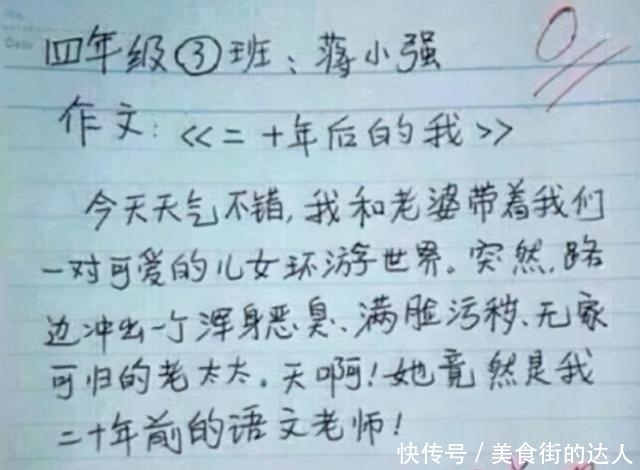 四年级③班:蒋小强
0
作文:<<二十年后的我>>
今天天气不错,我和老婆带着我们
一对可爱的儿女环游世界。突然,路
边冲出一个浑身恶臭、满脸污秽、无家
可归的老太太。天啊!她竟然是我
二十年前的语文老师!
快传号/美食街的达人